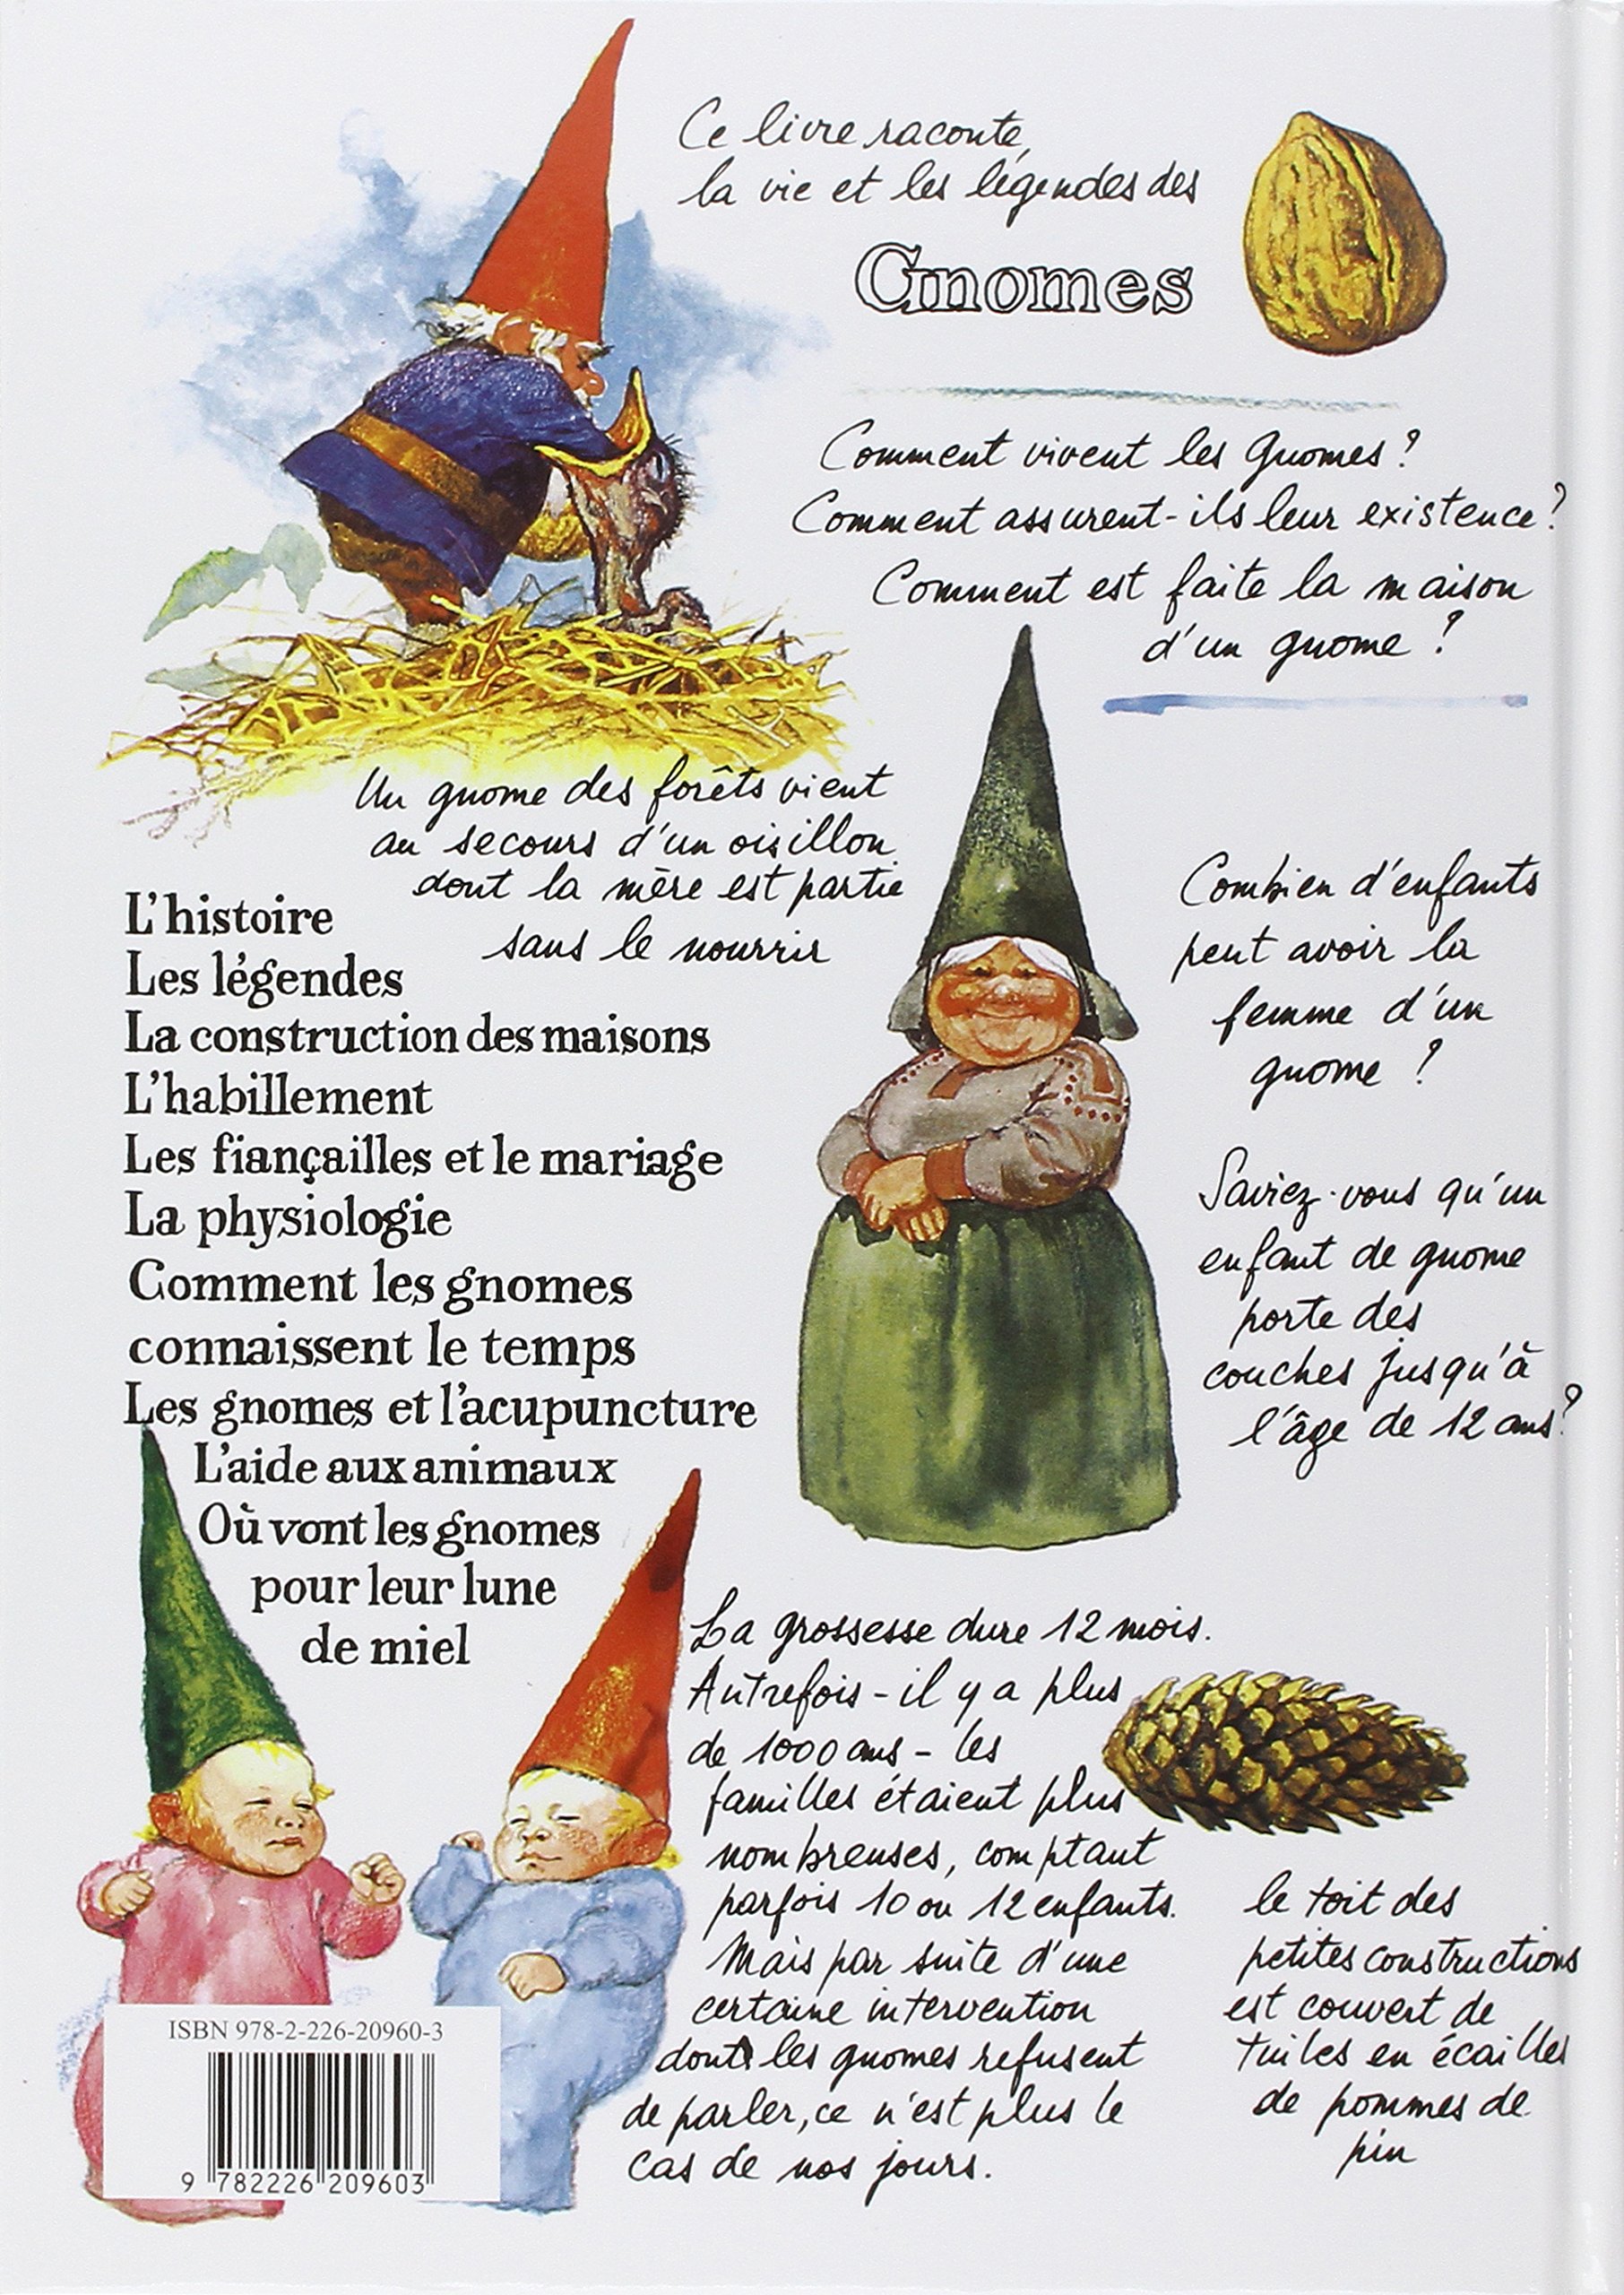 Ce livre raconte
la vie et les légendes des
Gnomes
Comment vivent les gnomes ?
Comment assurent-ils leur existence ?
Comment est faite la maison
d'un gnome ?
Un gnome des forêts vient
au secours d'un oisillon
dont la mère est partie
sans le nourrir
L'histoire
Les légendes
La construction des maisons
L'habillement
Les fiançailles et le mariage
La physiologie
Comment les gnomes
connaissent le temps
Les gnomes et l'acupuncture
L'aide aux animaux
Où vont les gnomes
pour leur lune
de miel
Combien d'enfants
peut avoir la
femme d'un
gnome ?
Saviez-vous qu'un
enfant de gnome
porte des
couches jusqu'à
l'âge de 12 ans ?
La grossesse dure 12 mois.
Autrefois - il y a plus
de 1000 ans - les
familles étaient plus
nombreuses, comptant
parfois 10 ou 12 enfants.
Mais par suite d'une
certaine intervention
dont les gnomes refusent
de parler, ce n'est plus le
cas de nos jours.
le toit des
petites constructions
est couvert de
tuiles en écailles
de pommes de
pin
ISBN 978-2-226-20960-3
9 782226 209603